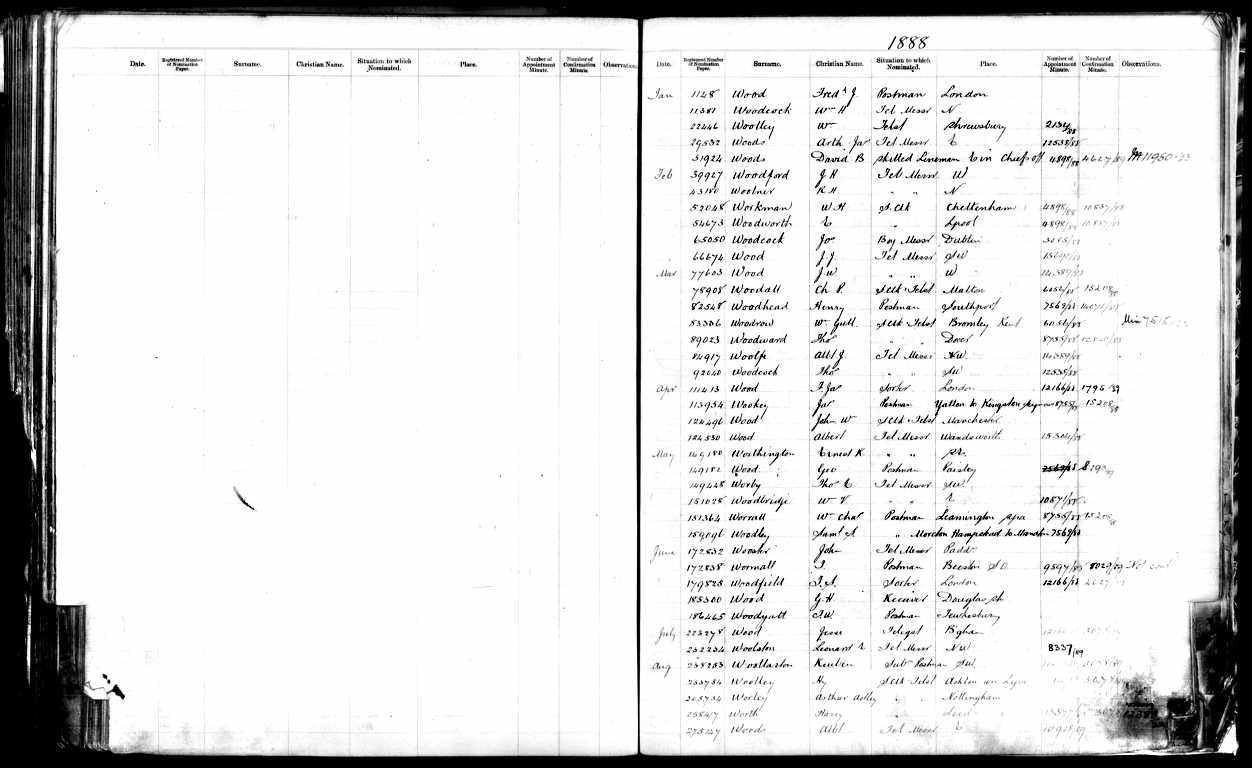 1888
Date. Registered Number of Nomination Paper. Surname. Christian Name. Situation to which Nominated. Place. Number of Appointment Minute. Number of Confirmation Minute. Observations.
Date. Registered Number of Nomination Paper. Surname. Christian Name. Situation to which Nominated. Place. Number of Appointment Minute. Number of Confirmation Minute. Observations.
Jan 1128 Wood Fredk J. Postman London
11381 Woodcock Wm H Tel Messr N
22446 Woolley Wm Telst Shrewsbury 2134/88
29532 Woods Arth Jas Tel Messr E 12538/88
31924 Woods David B Skilled Lineman E in Chiefs off 4898/88 4627/89
Feb 39927 Woodford J H Tel Messr W
43180 Woolner R H " " N
52048 Workman W H S.C&T Cheltenham 4898/88 10837/88
54673 Woodworth E " Lpool 4898/88 10837/88
65050 Woodcock Jos Boy Messr Dublin
66674 Wood J.J. Tel Messr SW
Mar 77603 Wood J.W " " W 14389/88
78908 Woodall Ch P. Malton 6056/88 15208/88
82548 Woodhead Henry Postman Southport 7569/88
83306 Woodrow Wm Gull. Bromley Kent 6056/88
89023 Woodward Thos " " Dover 8755/88
84917 Woolfe Albt J. Tel Messr NW 14389/88
92040 Woodcock Thos " " SW 12538/88
Apr 111413 Wood F. Jas Sorter London 12166/88 1795/89
113954 Wookey Jas Postman Yatton to Kingston 8755/88 15208/88
124496 Wood John W Manchester
124530 Wood Albert Tel Messr Wandsworth
May 149180 Worthington Ernest R. " "
149182 Wood Geo Postman Paisley
149448 Worby Thos E Tel Messr SW
151028 Woodbridge Wm V " " E 10871/88
151364 Worrall Wm Chas Postman Leamington Spa 8755/88 15208/88
159096 Woodley Saml A " Moreton Hampstead to Manaton 7569/88
June 172832 Wooster John Tel Messr Padd.
172838 Wormall J. Postman Beeston S.O. 9597/88 8029/89
179828 Woodfield J.A. Sorter London 12166/88 4627/89
185300 Wood G.H Receiver Douglas
186465 Woodyatt J.W. Postman Tewkesbury
July 223278 Wood Jesse Telegst Bham
232234 Woolston Leonard Tel Messr NW 8337/89
Aug 238283 Woollaston Reuben Sub Postman SW
253784 Woolley Hy Ashton un Lyne
Worley Arthur Astley " " Nottingham
258417 Worth Harry " " Leeds
275147 Woods Albt Tel Messr E